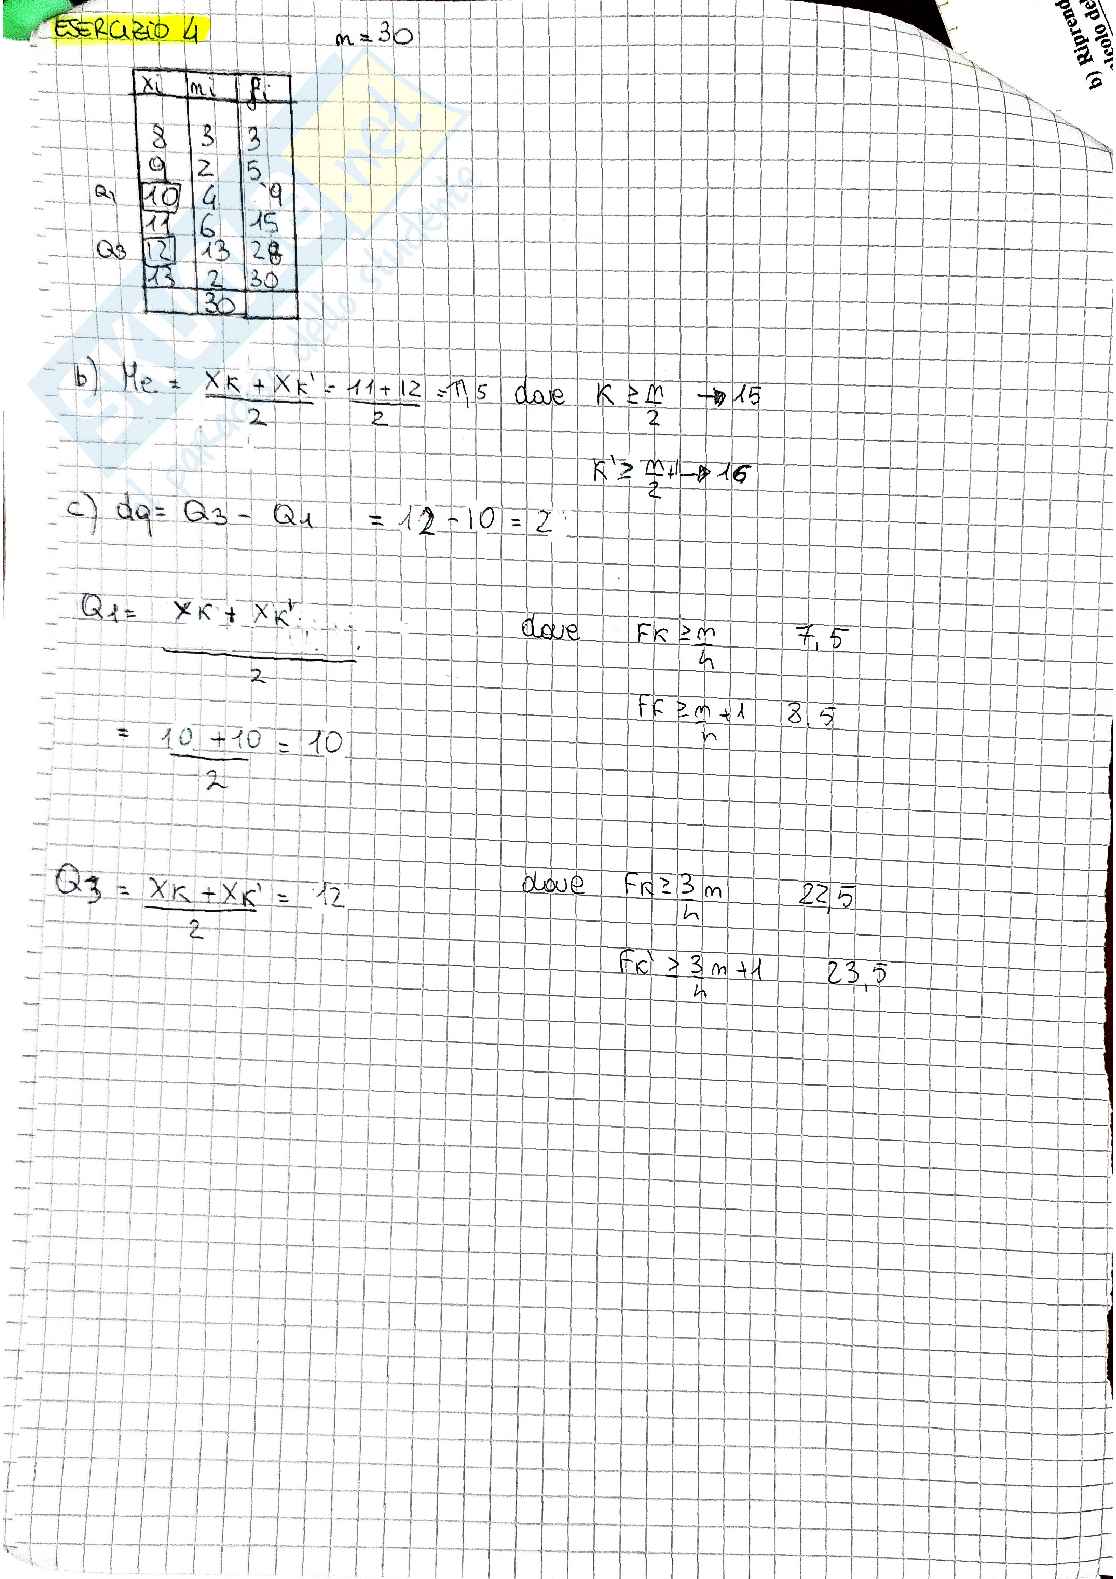 ESERCIZIO 4
n = 30
xi ni fi
8 3 3
9 2 5
Q1 10 4 9
11 6 15
Q3 12 13 28
13 2 30
30
b) Me = XK + XK' / 2 = 11 + 12 / 2 = 11,5 dove K ≥ n/2 → 15
K' ≥ n/2 + 1 → 16
c) dq = Q3 - Q1 = 12 - 10 = 2
Q1 = XK + XK' / 2 dove FK ≥ n/4 7,5
FK ≥ n/4 + 1 8,5
= 10 + 10 / 2 = 10
Q3 = XK + XK' / 2 = 12 dove FK ≥ 3/4 n 22,5
FK' ≥ 3/4 n + 1 23,5
b) Riprend